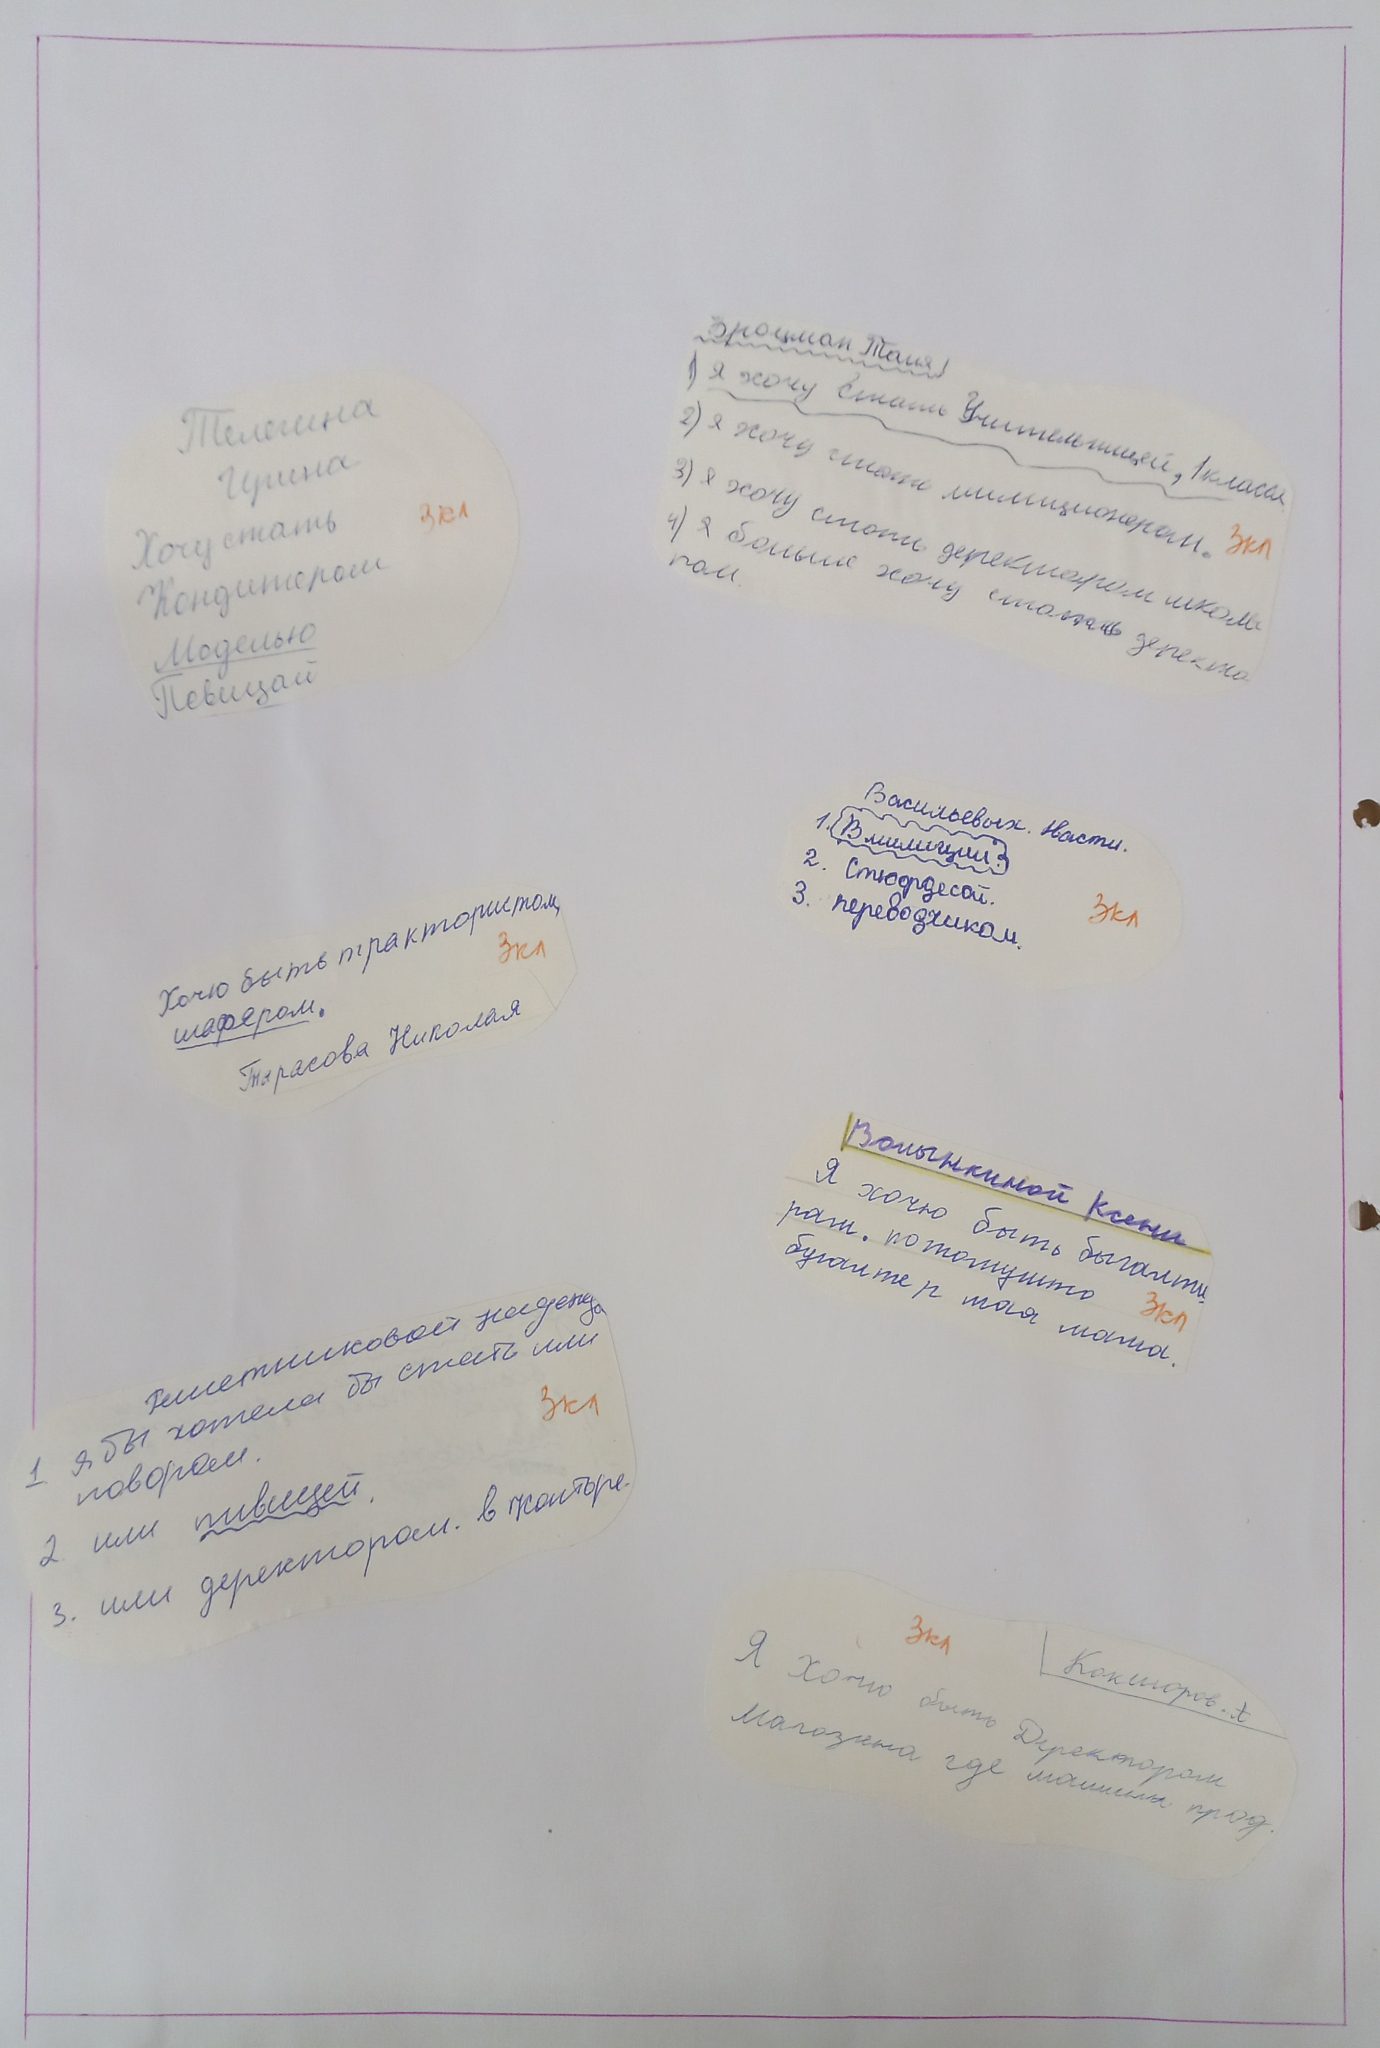 Телегина
Ирина
Хочу стать
3кл
Кондитером
Моделью
Певицай
Троцман Таня!
1) Я хочу стать Учительницей, 1класса
2) Я хочу стать милиционером.
3кл
3) Я хочу стать деректаром школы
4) Я больше хочу стать деректо
ром.
Васильевых. Насти.
1. В милиции.
2. Стюрдесой.
3. переводчиком.
3кл
Хочю быть трактористом,
3кл
шафером.
Тарасова Николая
Волынкиной Ксени
Я хочю быть быгалти
рам. потомушто
3кл
бугалтер моя мама.
Решетниковой надежда
1 я бы хотела бы стать или
поваром.
3кл
2 или пивицей.
3. или деректором. в конторе.
3кл
Кокшаров. А
Я Хочю быть Деректором
Магозина где машины прод.